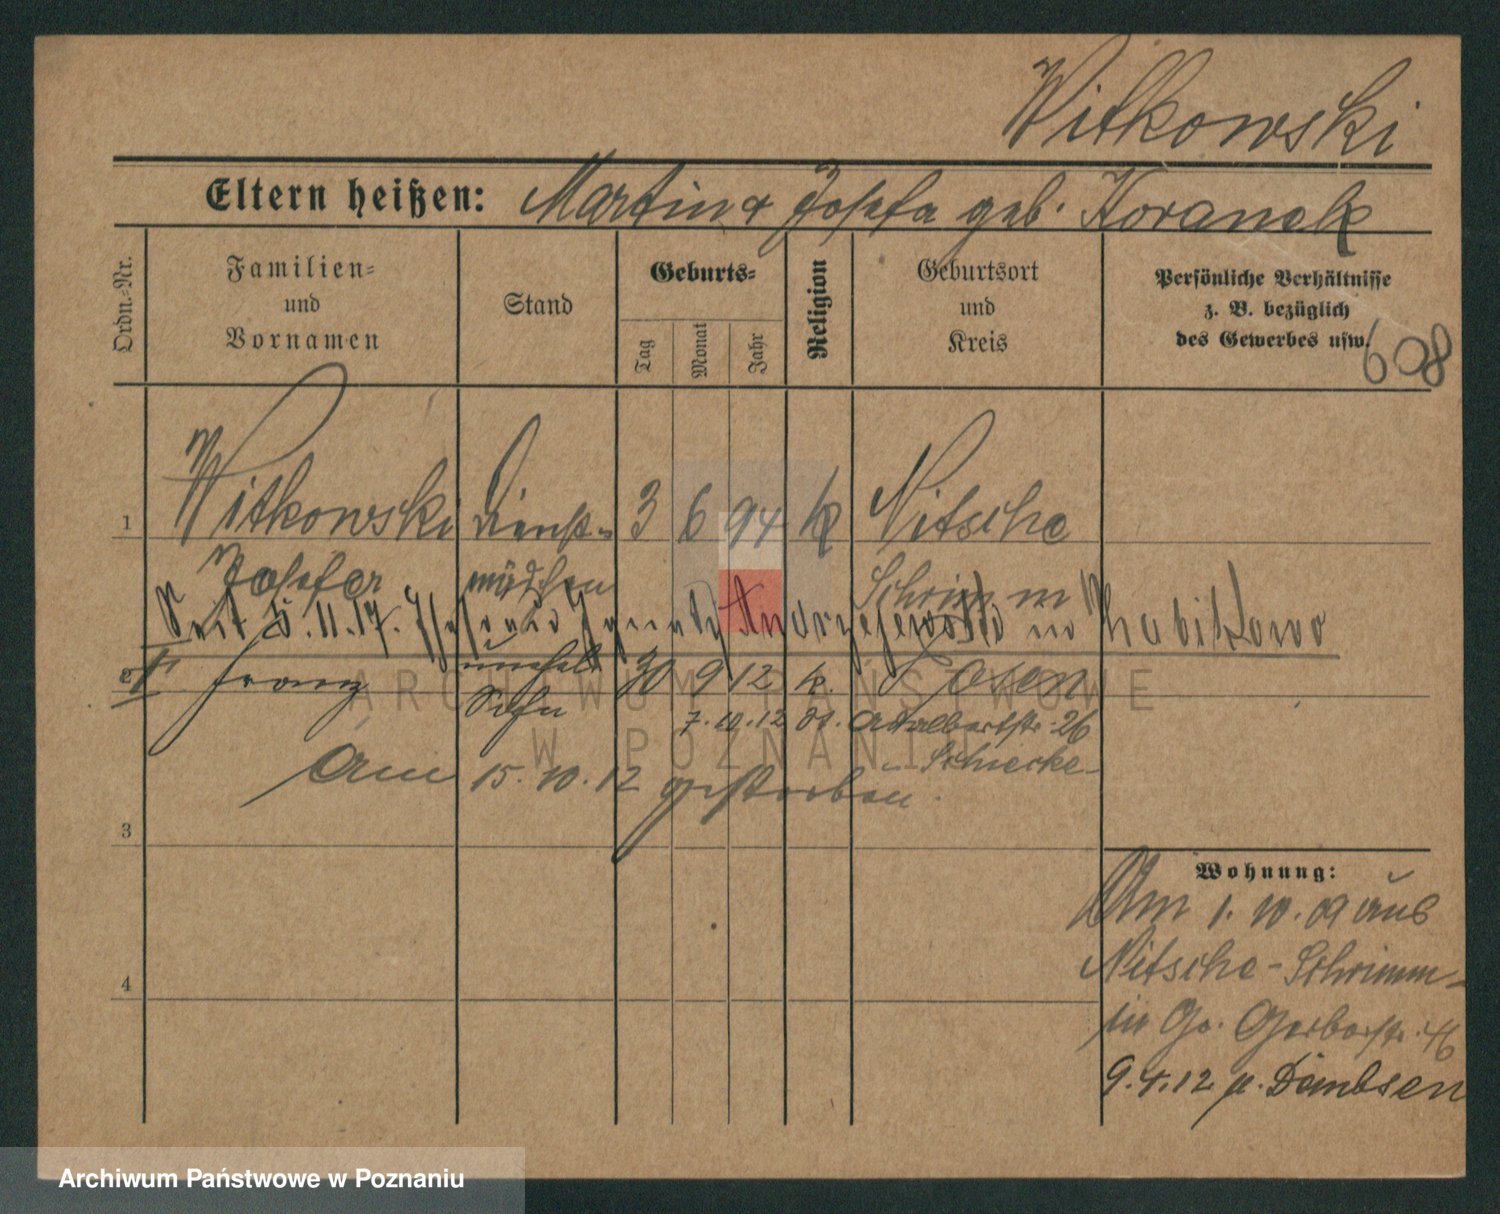 Witkowski
Eltern heißen: Martin & Josefa geb. Koranek
Ordn.-Nr.
Familien- und Vornamen
Stand
Geburts-
Tag Monat Jahr
Religion
Geburtsort und Kreis
Persönliche Verhältnisse z. B. bezüglich des Gewerbes usw.
608
1 Witkowski Dienst- 3 6 94 k Nitsche
Josefa mädchen Schrimm
Seit 5.11.17. Ignatz Andrzejewski in Zabikowo
2 Franz unehel. 30 9 12 k. Posen
Sohn 7.10.12 Adalbertstr. 26
Schiecke
Am 15.10.12 gestorben.
3
4
Wohnung:
Am 1.10.09 aus
Nitsche-Schrimm-
in Gr. Gerberstr. 46
9.4.12 n. Dembsen
ARCHIWUM PAŃSTWOWE
W POZNANIU
Archiwum Państwowe w Poznaniu